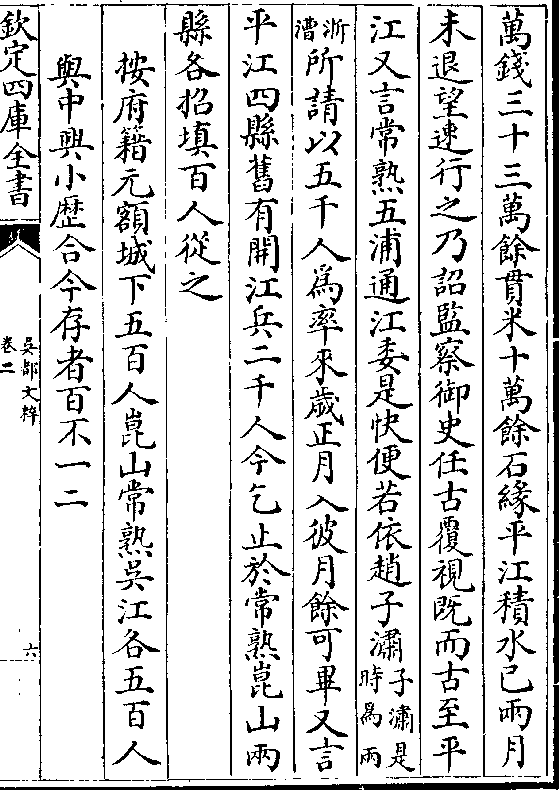 萬錢三十三萬餘貫米十萬餘石緣平江積水已兩月
未退望速行之乃詔監察御史任古覆視既而古至平
江又言常熟五浦通江委是快便若依趙子潚子潚是時爲兩
浙漕所請以五千人爲率來歲正月入彼月餘可畢又言
平江四縣舊有開江兵二千人今乞止於常熟崑山兩
縣各招填百人從之
按府籍元額城下五百人崑山常熟吳江各五百人
與中興小歷合今存者百不一二
欽定四庫全書
吳都文粹
卷二
六